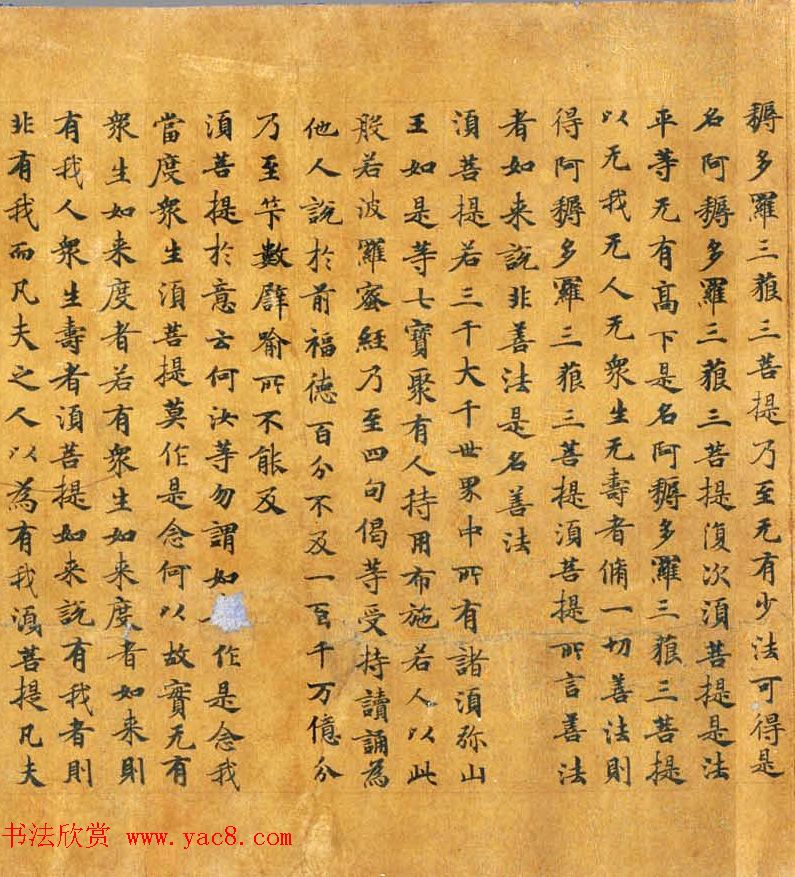 耨多羅三藐三菩提乃至无有少法可得是
名阿耨多羅三藐三菩提復次須菩提是法
平等无有高下是名阿耨多羅三藐三菩提
以无我无人无衆生无壽者脩一切善法則
得阿耨多羅三藐三菩提須菩提所言善法
者如来說非善法是名善法
須菩提若三千大千世界中所有諸須弥山
王如是等七寶聚有人持用布施若人以此
般若波羅蜜經乃至四句偈等受持讀誦為
他人說於前福德百分不及一百千万億分
乃至筭數譬喻所不能及
須菩提於意云何汝等勿謂如作是念我
當度衆生須菩提莫作是念何以故實无有
衆生如来度者若有衆生如来度者如来則
有我人衆生壽者須菩提如来說有我者則
非有我而凡夫之人以為有我須菩提凡夫
书法欣赏 www.yac8.com